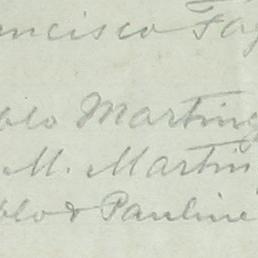 ncisco Fa
blo Martin
M. Martin
blo & Pauline